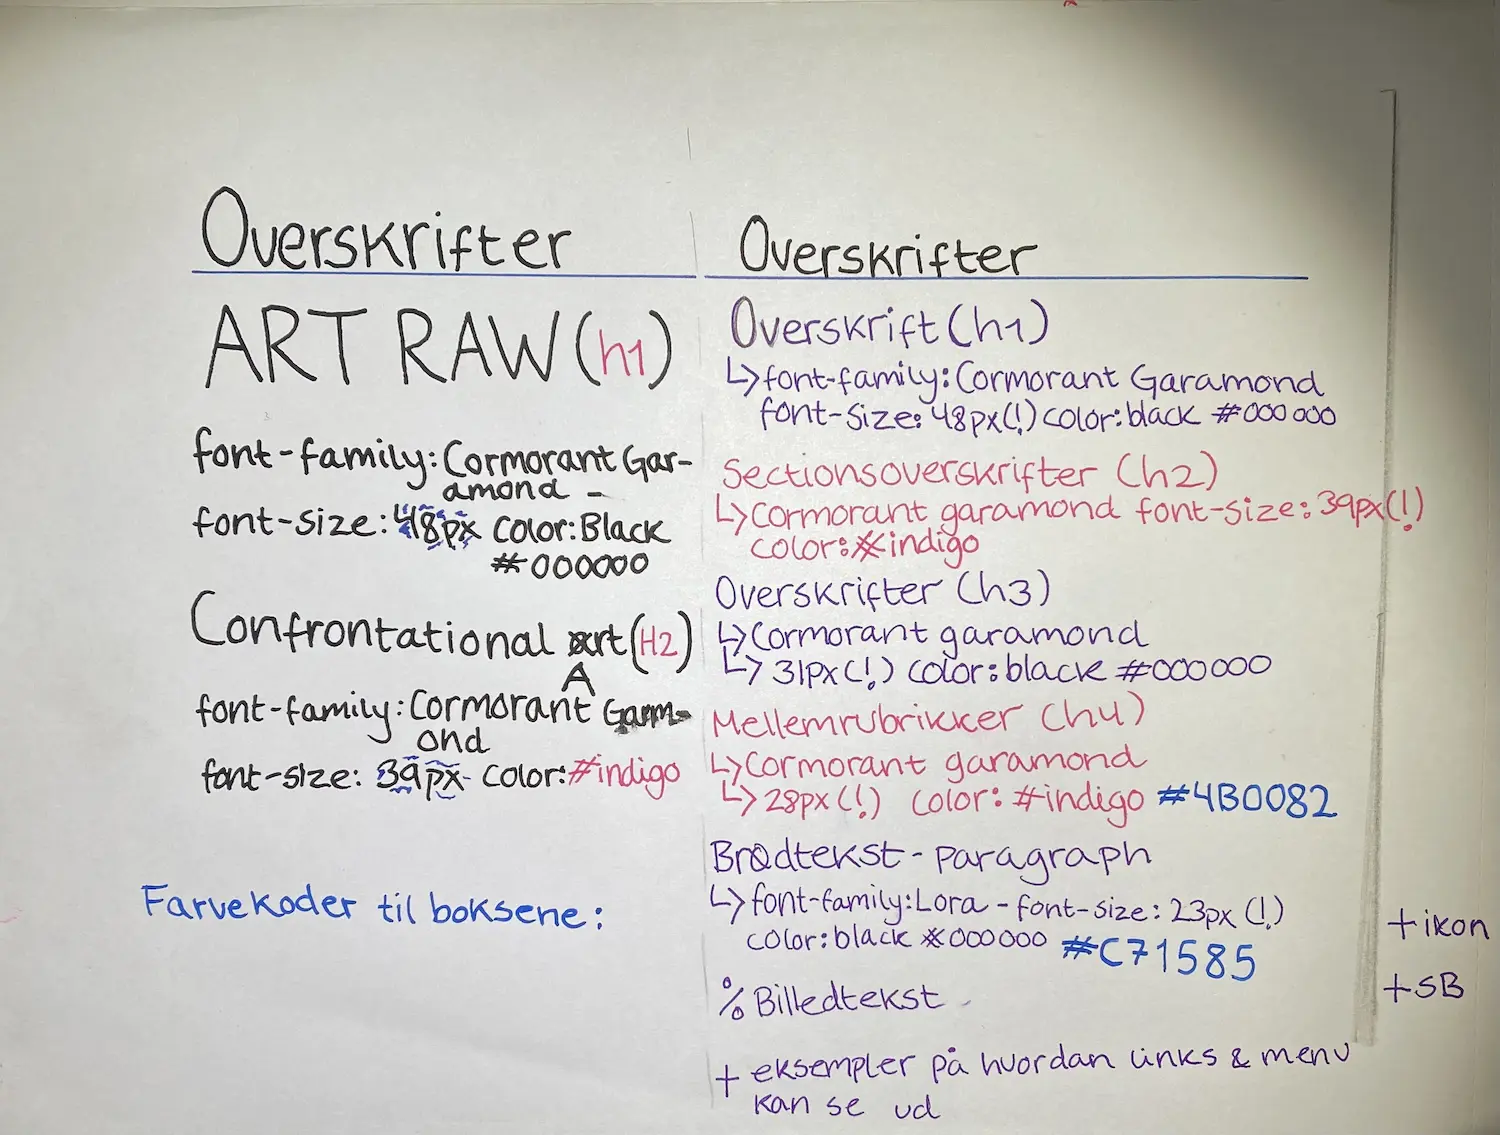 Overskrifter
ART RAW (h1)
font-family: Cormorant Gar-
amond -
font-size: 48px color: Black
#000000
Confrontational art (H2)
A
font-family: Cormorant Garam-
ond
font-size: 39px- color: #indigo
Farvekoder til boksene:
Overskrifter
Overskrift (h1)
↳ font-family: Cormorant Garamond
font-size: 48px(!) color: black #000000
Sectionsoverskrifter (h2)
↳ Cormorant garamond font-size: 39px(!)
color: #indigo
Overskrifter (h3)
↳ Cormorant garamond
↳ 31px(!) color: black #000000
Mellemrubrikker (h4)
↳ Cormorant garamond
↳ 28px(!) color: #indigo #4B0082
Brødtekst - paragraph
↳ font-family: Lora - font-size: 23px (!)
color: black #000000 #C71585
% Billedtekst -
+ eksempler på hvordan links & menu
kan se ud
+ ikon
+ SB